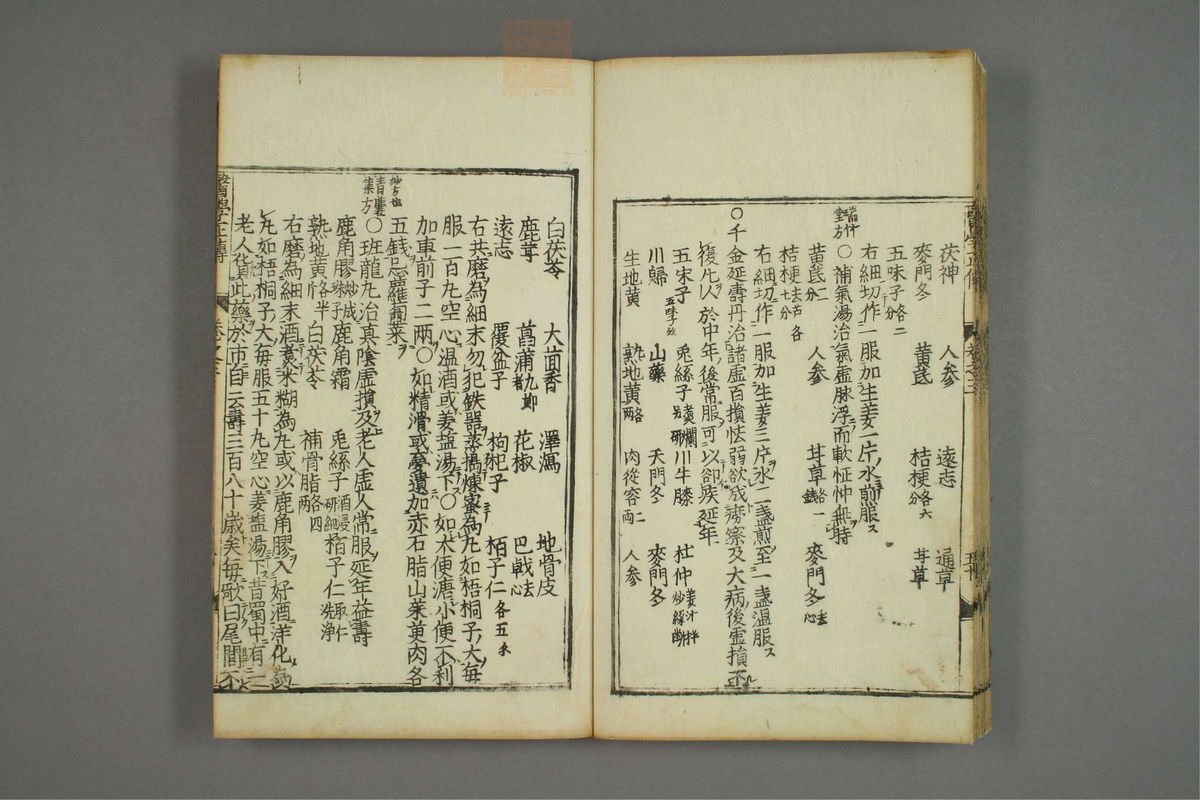 茯神 人参 遠志 通草
麥門冬 黄芪 桔梗各六分 甘草
五味子各二分
右細切作一服加生姜一片水煎服
○補氣湯治氣虚脉浮而軟怔忡無時
黄芪二分 人参 甘草各一錢 麥門冬去心
桔梗去芦各七分
右細切作一服加生姜三片水二盞煎至一盞温服
○千金延壽丹治諸虚百損怯弱欲成癆瘵及大病後虚損不
復凢人於中年後常服可以却疾延年
五味子 兎絲子 川牛膝 杜仲姜汁拌炒絲斷
川歸 山藥 天門冬 麥門冬
生地黄 熟地黄各二兩 肉從容二両 人参
白茯苓 大茴香 澤瀉 地骨皮
鹿茸 菖蒲九節者 花椒 巴戟去心
遠志 覆盆子 枸杞子 栢子仁各五
右共磨為細末勿犯鉄器蒸搗煉蜜為九如梧桐子大毎
服一百九空心温酒或姜塩湯下○如大便溏小便不利
加車前子二兩○如精滑或夢遺加赤石脂山茱萸肉各
五錢忌蘿蔔菜
○班龍九治真陰虚損及老人虚人常服延年益壽
鹿角膠炒成珠子 鹿角霜 兎絲子酒浸研細 栢子仁取仁洗浄
熟地黄各半斤 白茯苓 補骨脂各四兩
右磨為細末酒煮米糊為九或以鹿角膠入好酒洋化為
九如梧桐子大毎服五十九空心姜塩湯下昔蜀中有一
老人貨此藥於市自云壽三百八十歳矣毎歌曰尾閭不